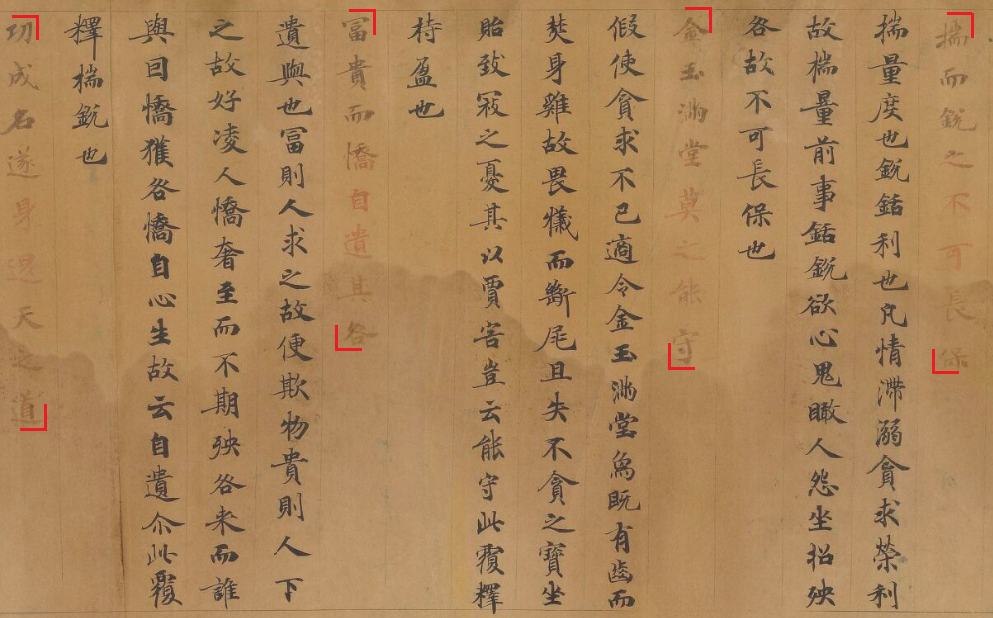 揣而銳之不可長保
揣量度也銳銛利也凡情滯溺貪求榮利
故揣量前事銛銳欲心鬼瞰人怨坐招殃
咎故不可長保也
金玉滿堂莫之能守
假使貪求不已適令金玉滿堂象既有齒而
焚身雞故畏犧而斷尾且失不貪之寶坐
貽致寇之憂其以賈害豈云能守此覆釋
持盈也
冨貴而憍自遺其咎
遺與也冨則人求之故便欺物貴則人下
之故好凌人憍奢至而不期殃咎来而誰
與因憍獲咎憍自心生故云自遺尒此覆
釋揣銳也
功成名遂身退天之道